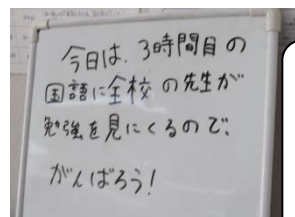 今日は、3時間目の
国語に全校の先生が
勉強を見にくるので、
がんばろう!